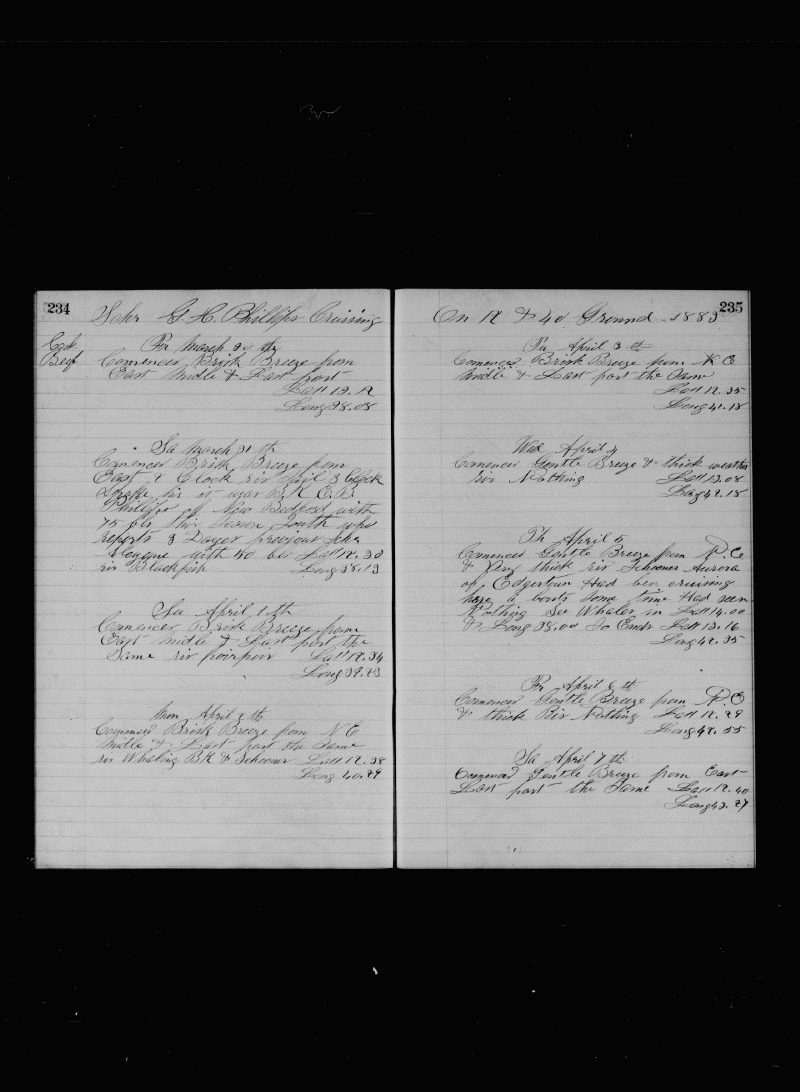 234
Schr G. H. Phillips Cruising
Fr March 30 th
Comences Brisk Breeze from
East Midle & Last part
Latt 12.12
Long 38.08
Sa March 31 th
Comences Brisk Breeze from
East 1 Clock Sail 3 Clock
Spoke it was BK
Phillips of New Bedford with
75 bls this Season South
reports 3 Dayes previous Schr
with 150 bls Latt 12.30
Blackfish Long 38.13
Su April 1 th
Comences Brisk Breeze from
East Midle & Last part the
Same Latt 12.34
Long 39.23
Mon April 2 th
Comences Brisk Breeze from N E
Midle & Last part the Same
Whaling BK & Schooner Latt 12.38
Long 40.29
235
On 12 & 40 Ground 1883
April 3 th
Comences Brisk Breeze from N E
Midle & Last part the Same
Latt 12.35
Long 41.18
Wed April 4
Comences Gentle Breeze & thick weather
Nothing Latt 13.08
Long 42.18
Th April 5
Comences Gentle Breeze from N. E
& Very thick Schooner Aurora
of Edgertown Had ben cruising
here a bouts Some time Had seen
Nothing See Whales in Latt 14.00
& Long 38.00 So Ends Latt 13.16
Long 42.35
Fr April 6 th
Comences Gentle Breeze from N. E
& thick Nothing Latt 12.29
Long 42.55
Sa April 7 th
Comences Gentle Breeze from East
Last part the Same Latt 12.40
Long 43.27